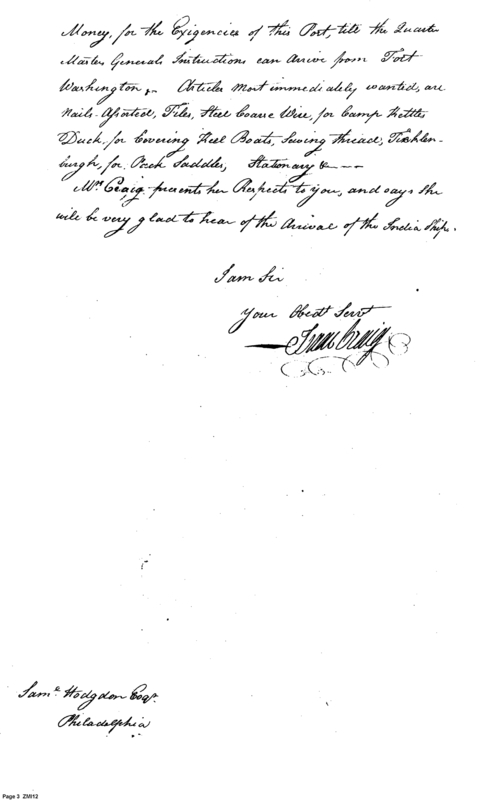 Money, for the Exigencies of this Post, till the Quarter
Master Generals Instructions can Arrive from Fort
Washington,. Articles Most immediately wanted, are
Nails-Assorted, Files, Steel Coarse Wire, for Camp Kettles
Duck, for Covering Keel Boats, Sewing thread, Ticklen-
burgh, for Pack Saddles, Stationary & ---
Mrs. Craig presents her Respects to you, and says She
will be very glad to hear of the Arrival of the India Ships.
I am Sir
Your Obedt Servt
Isaac Craig
Saml Hodgdon Esqr.
Philadelphia
Page 3 ZMI12